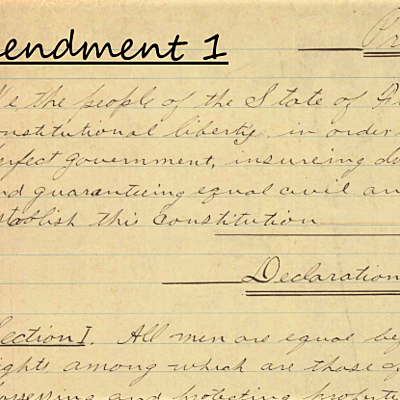 Pr
endment 1
e the people of the State of
onstitutional liberty, in order
erfect government, insureing do
nd guaranteeing equal civil an
stablish this Constitution
Declaration
ection I. All men are equal bef
ights among which are those of
ossessing and protecting propert